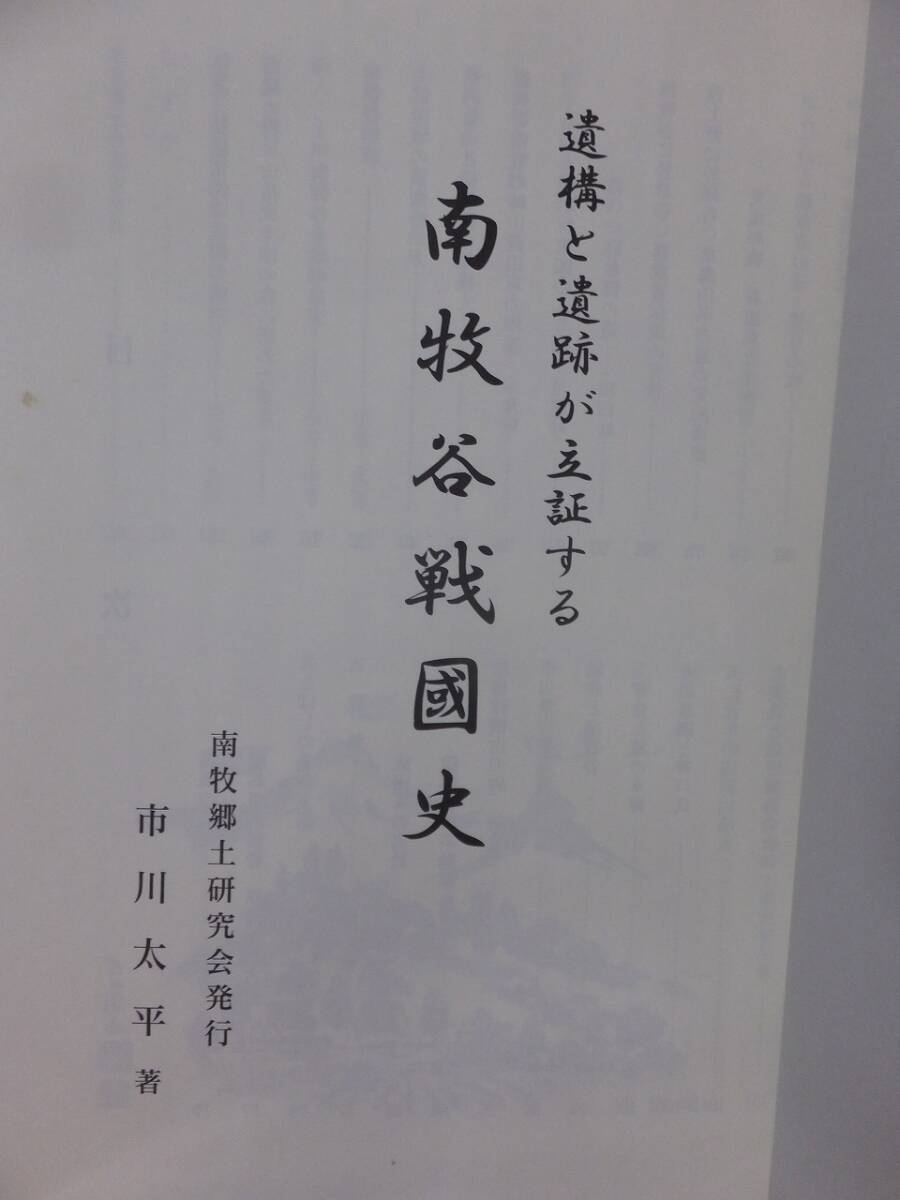 遺構と遺跡が立証する
南牧谷戦國史
南牧郷土研究会発行
市川太平著